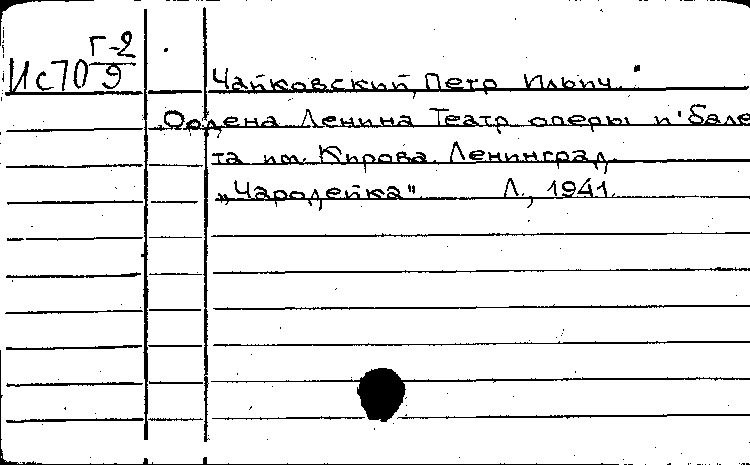 Ис70 Г-2/9
Чайковский, Петр Ильич.
Ордена Ленина Театр оперы и бале
та им. Кирова. Ленинград.
„Чародейка" Л., 1941.